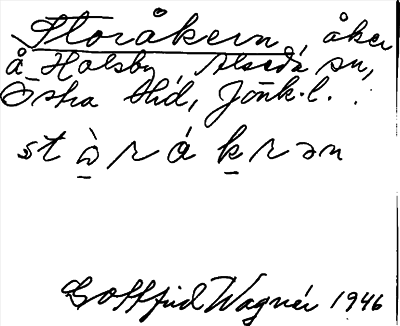 Storåkern, åker
å Holsby Alseda sn,
Östra Hd, Jönk.l.
st ò̱ r á ḵ r ə n
Gottfrid Wagnér 1946